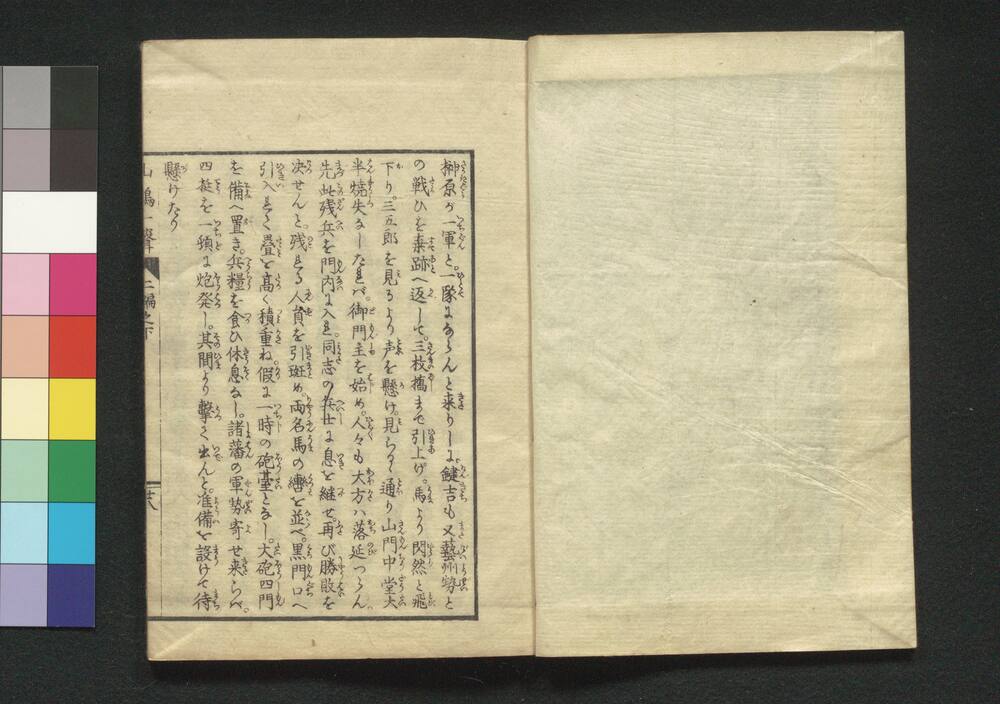 榊原が一軍と。一隊にならんと来りしに。鍵吉も又藝州勢と
の戦ひを棄跡へ返して。三枚橋まで引上げ。馬より閃然と飛
下り。三五郎を見るより声を懸け。見らるゝ通り山門中堂大
半焼失なしたれバ。御門主を始め。人々も大方ハ落延つらん
先此残兵を門内に入れ。同志の兵士に息を継せ。再び勝敗を
决せんと。残れる人員を引斑め。両名馬の轡を並べ。黒門口へ
引入れて畳を高く積重ね。假に一時の砲臺となし。大砲四門
を備へ置き。兵糧を食ひ休息なし。諸藩の軍勢寄せ来らバ。
四挺を一頻に炮発し。其間より撃て出んと。准備を設けて待
懸けたり
二編之下
廿八